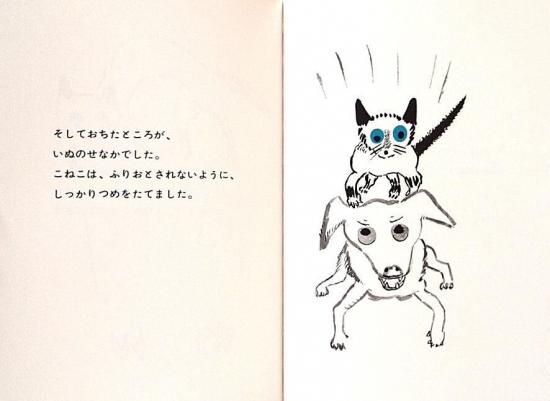 そしておちたところが、
いぬのせなかでした。
こねこは、ふりおとされないように、
しっかりつめをたてました。